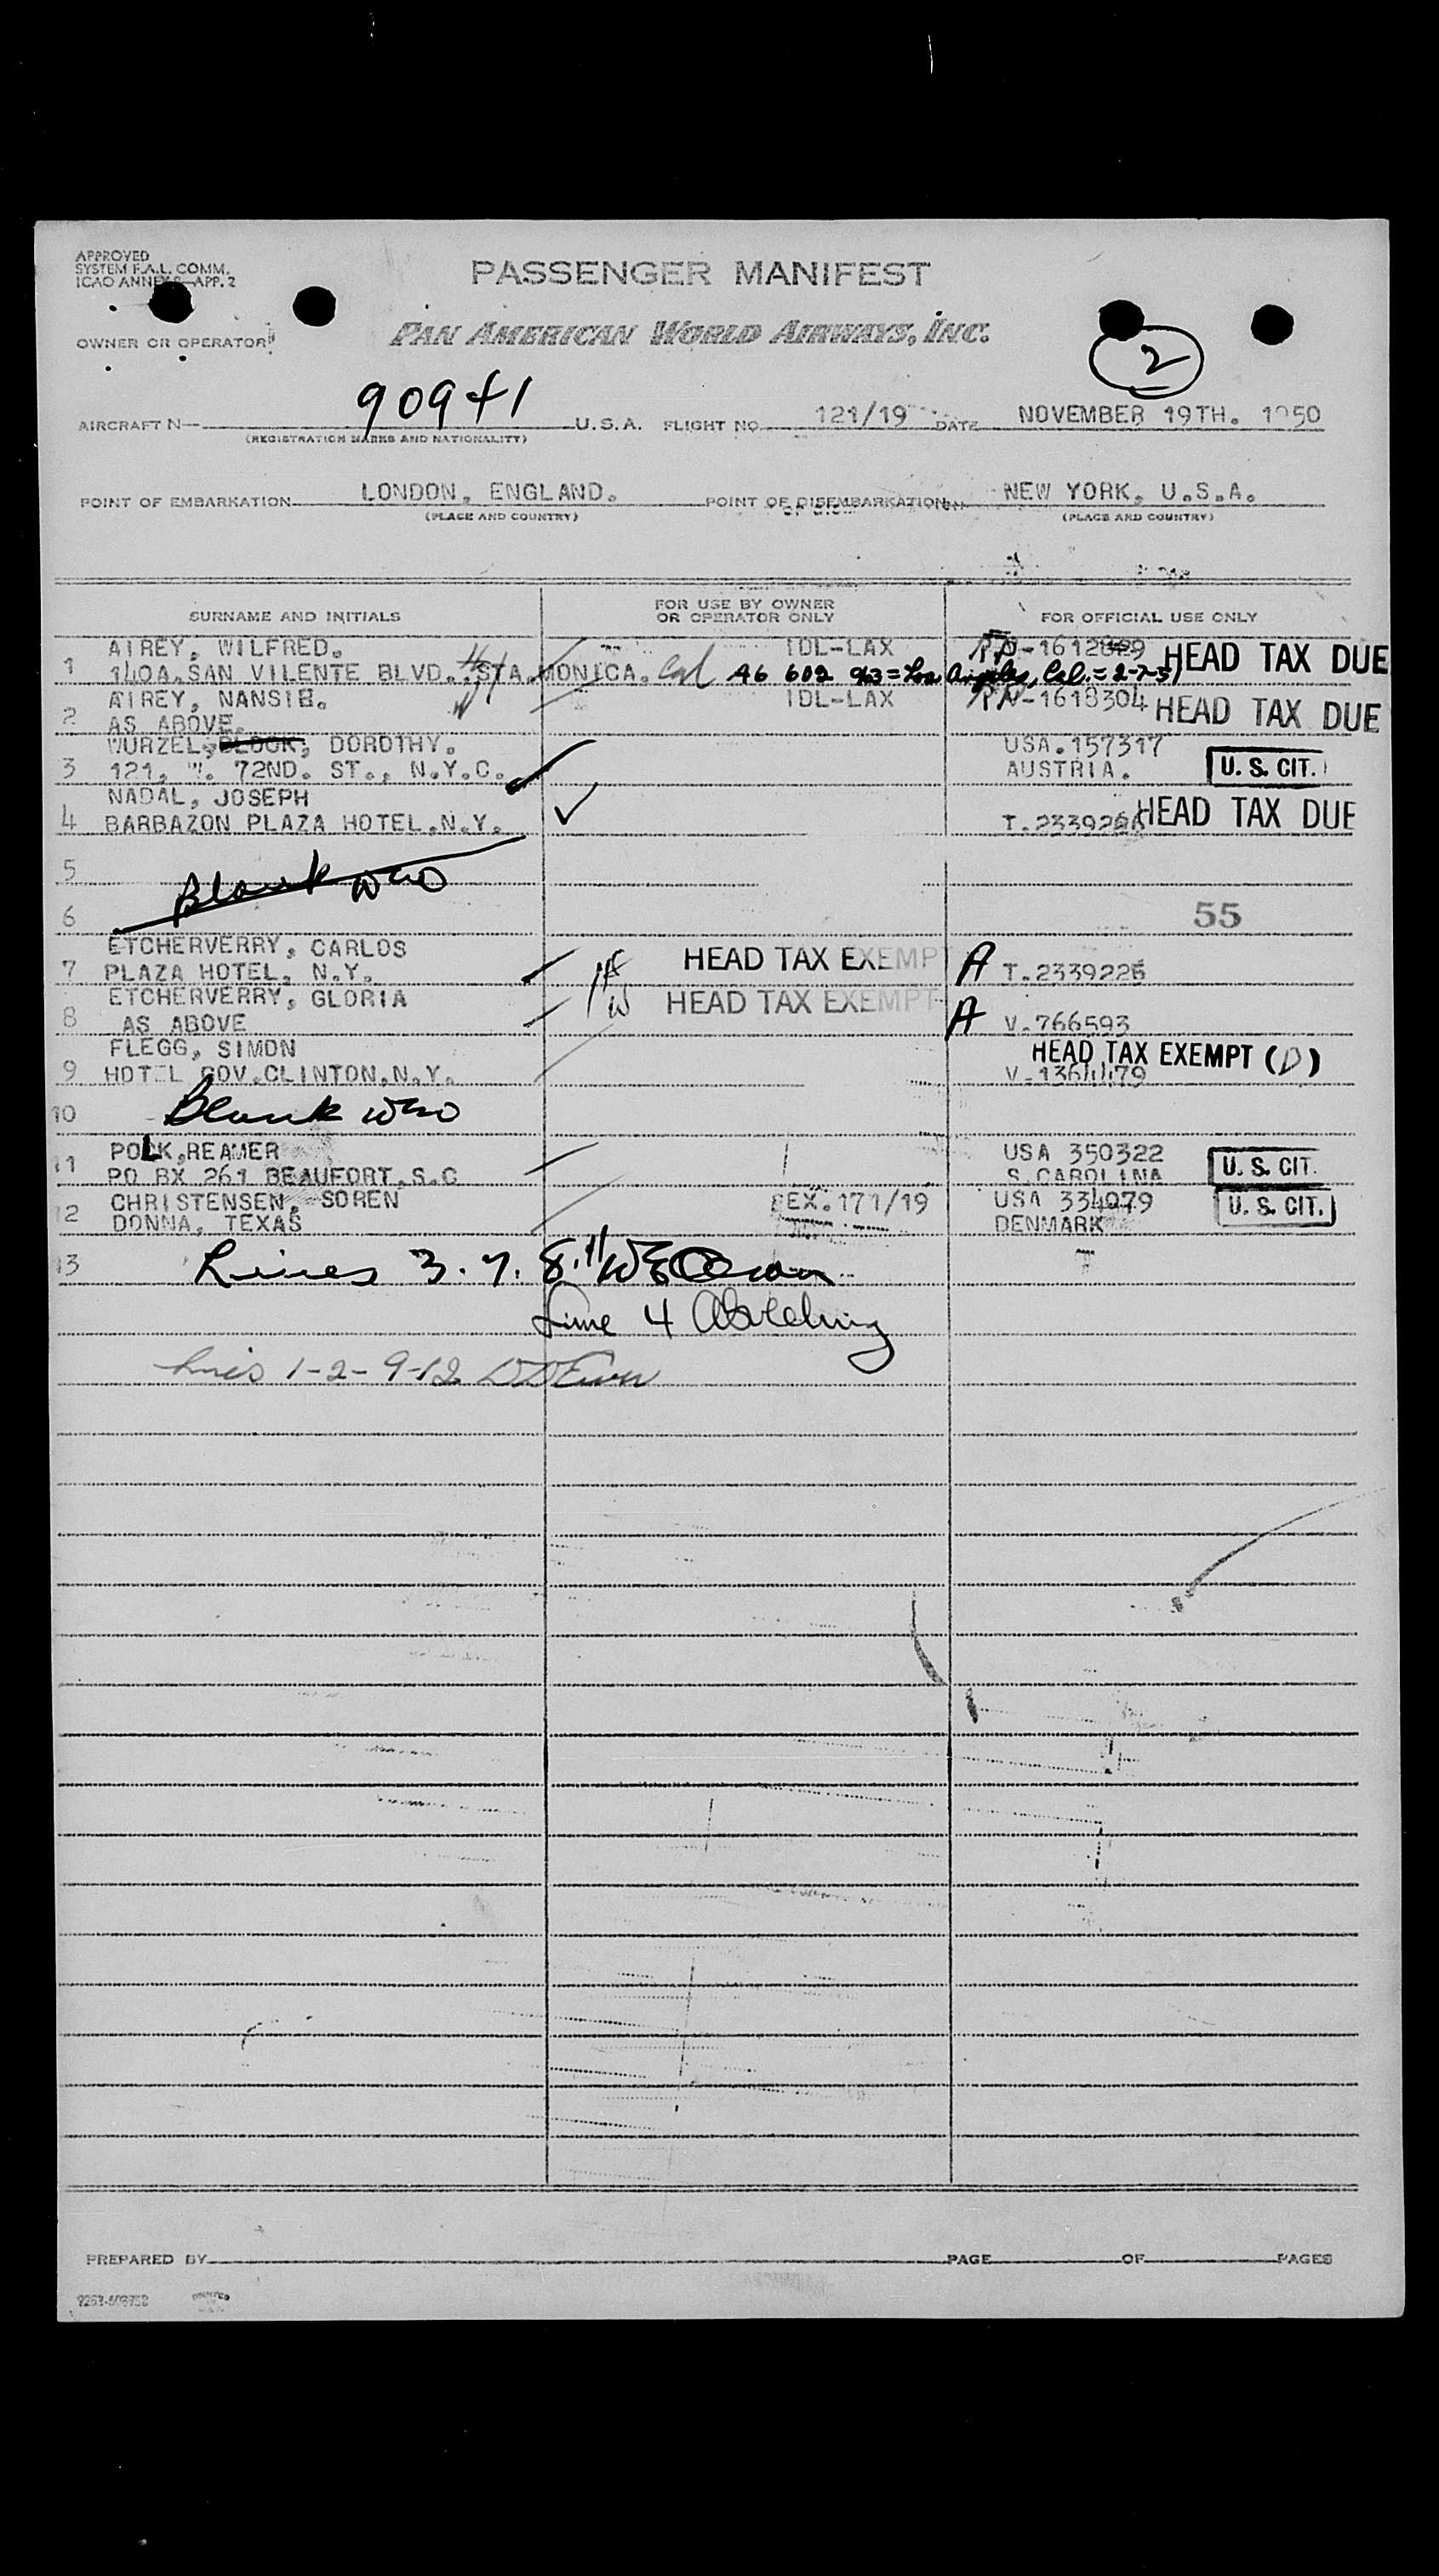 APPROVED
SYSTEM F.A.L. COMM.
ICAO ANNEX 9-APP. 2
PASSENGER MANIFEST
OWNER OR OPERATOR
PAN AMERICAN WORLD AIRWAYS, INC.
2
AIRCRAFT N- 90941 U.S.A. FLIGHT NO. 121/19 DATE NOVEMBER 19TH. 1950
(REGISTRATION MARKS AND NATIONALITY)
POINT OF EMBARKATION LONDON, ENGLAND. POINT OF DISEMBARKATION NEW YORK, U.S.A.
(PLACE AND COUNTRY) (PLACE AND COUNTRY)
SURNAME AND INITIALS FOR USE BY OWNER OR OPERATOR ONLY FOR OFFICIAL USE ONLY
AIREY, WILFRED. IDL-LAX HEAD TAX DUE
1 140A.SAN VILENTE BLVD. STA.MONICA. Cal A6 602 963 = Los Angeles, Cal. = 2-7-51
AIREY, NANSIE. IDL-LAX -1618304 HEAD TAX DUE
2 AS ABOVE.
WURZEL, BLOCK, DOROTHY. USA.157317
3 121, W. 72ND. ST., N.Y.C. AUSTRIA. U. S. CIT.
NADAL, JOSEPH
4 BARBAZON PLAZA HOTEL.N.Y. HEAD TAX DUE
5 Blank
6 55
ETCHERVERRY, CARLOS
7 PLAZA HOTEL, N.Y. H HEAD TAX EXEMPT A T.2339225
ETCHERVERRY, GLORIA
8 AS ABOVE W HEAD TAX EXEMPT A V.766593
FLEGG, SIMON HEAD TAX EXEMPT (D)
9 HOTEL GOV.CLINTON,N.Y. V-1364479
10 Blank
POLK,REAMER USA 350322
11 PO BX 261 BEAUFORT,S.C S.CAROLINA U. S. CIT.
CHRISTENSEN, SOREN PEX.171/19 USA 334079
12 DONNA, TEXAS DENMARK U. S. CIT.
13 Lines 3. 7. 8. 11
Line 4
Lines 1-2-9-12
PREPARED BY PAGE OF PAGES